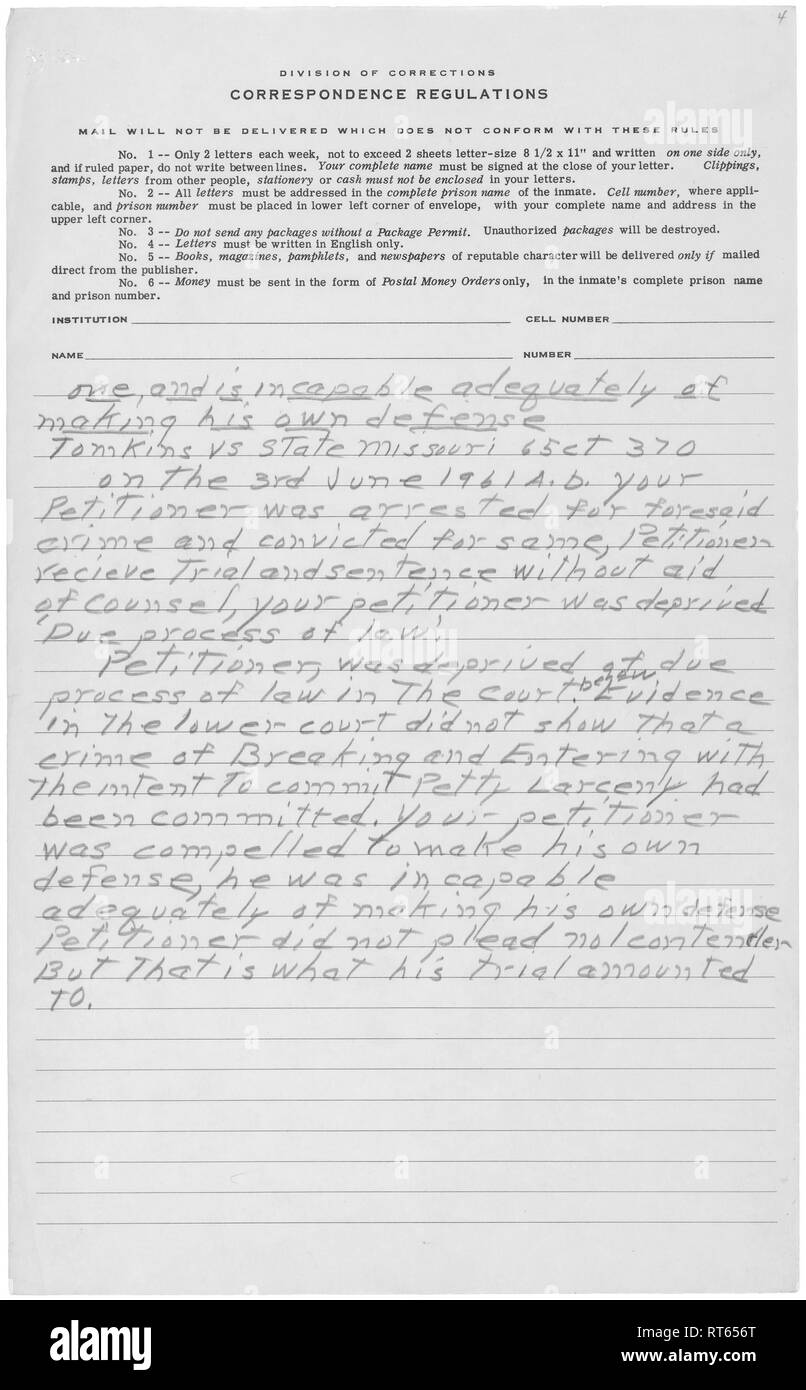 4
DIVISION OF CORRECTIONS
CORRESPONDENCE REGULATIONS
MAIL WILL NOT BE DELIVERED WHICH DOES NOT CONFORM WITH THESE RULES
No. 1 -- Only 2 letters each week, not to exceed 2 sheets letter-size 8 1/2 x 11" and written on one side only,
and if ruled paper, do not write between lines. Your complete name must be signed at the close of your letter. Clippings,
stamps, letters from other people, stationery or cash must not be enclosed in your letters.
No. 2 -- All letters must be addressed in the complete prison name of the inmate. Cell number, where appli-
cable, and prison number must be placed in lower left corner of envelope, with your complete name and address in the
upper left corner.
No. 3 -- Do not send any packages without a Package Permit. Unauthorized packages will be destroyed.
No. 4 -- Letters must be written in English only.
No. 5 -- Books, magazines, pamphlets, and newspapers of reputable character will be delivered only if mailed
direct from the publisher.
No. 6 -- Money must be sent in the form of Postal Money Orders only, in the inmate's complete prison name
and prison number.
INSTITUTION CELL NUMBER
NAME NUMBER
one, and is incapable adequately of
making his own defense
Tomkins vs State Missouri 65ct 370
on the 3rd June 1961 A.D. your
Petitioner was arrested for foresaid
crime and convicted for same, Petitioner
recieve trial and sentence without aid
of counsel, your petitioner was deprived
'Due process of law'.
Petitioner, was deprived of due
process of law in the court below. Evidence
in the lower court did not show that a
crime of Breaking and Entering with
the intent to commit Petty Larceny had
been committed. Your petitioner
was compelled to make his own
defense, he was incapable
adequately of making his own defense
Petitioner did not plead nol contender
But that is what his trial amounted
to.
alamy
alamy
alamy
a
alamy
Image ID: RT656T
www.alamy.com